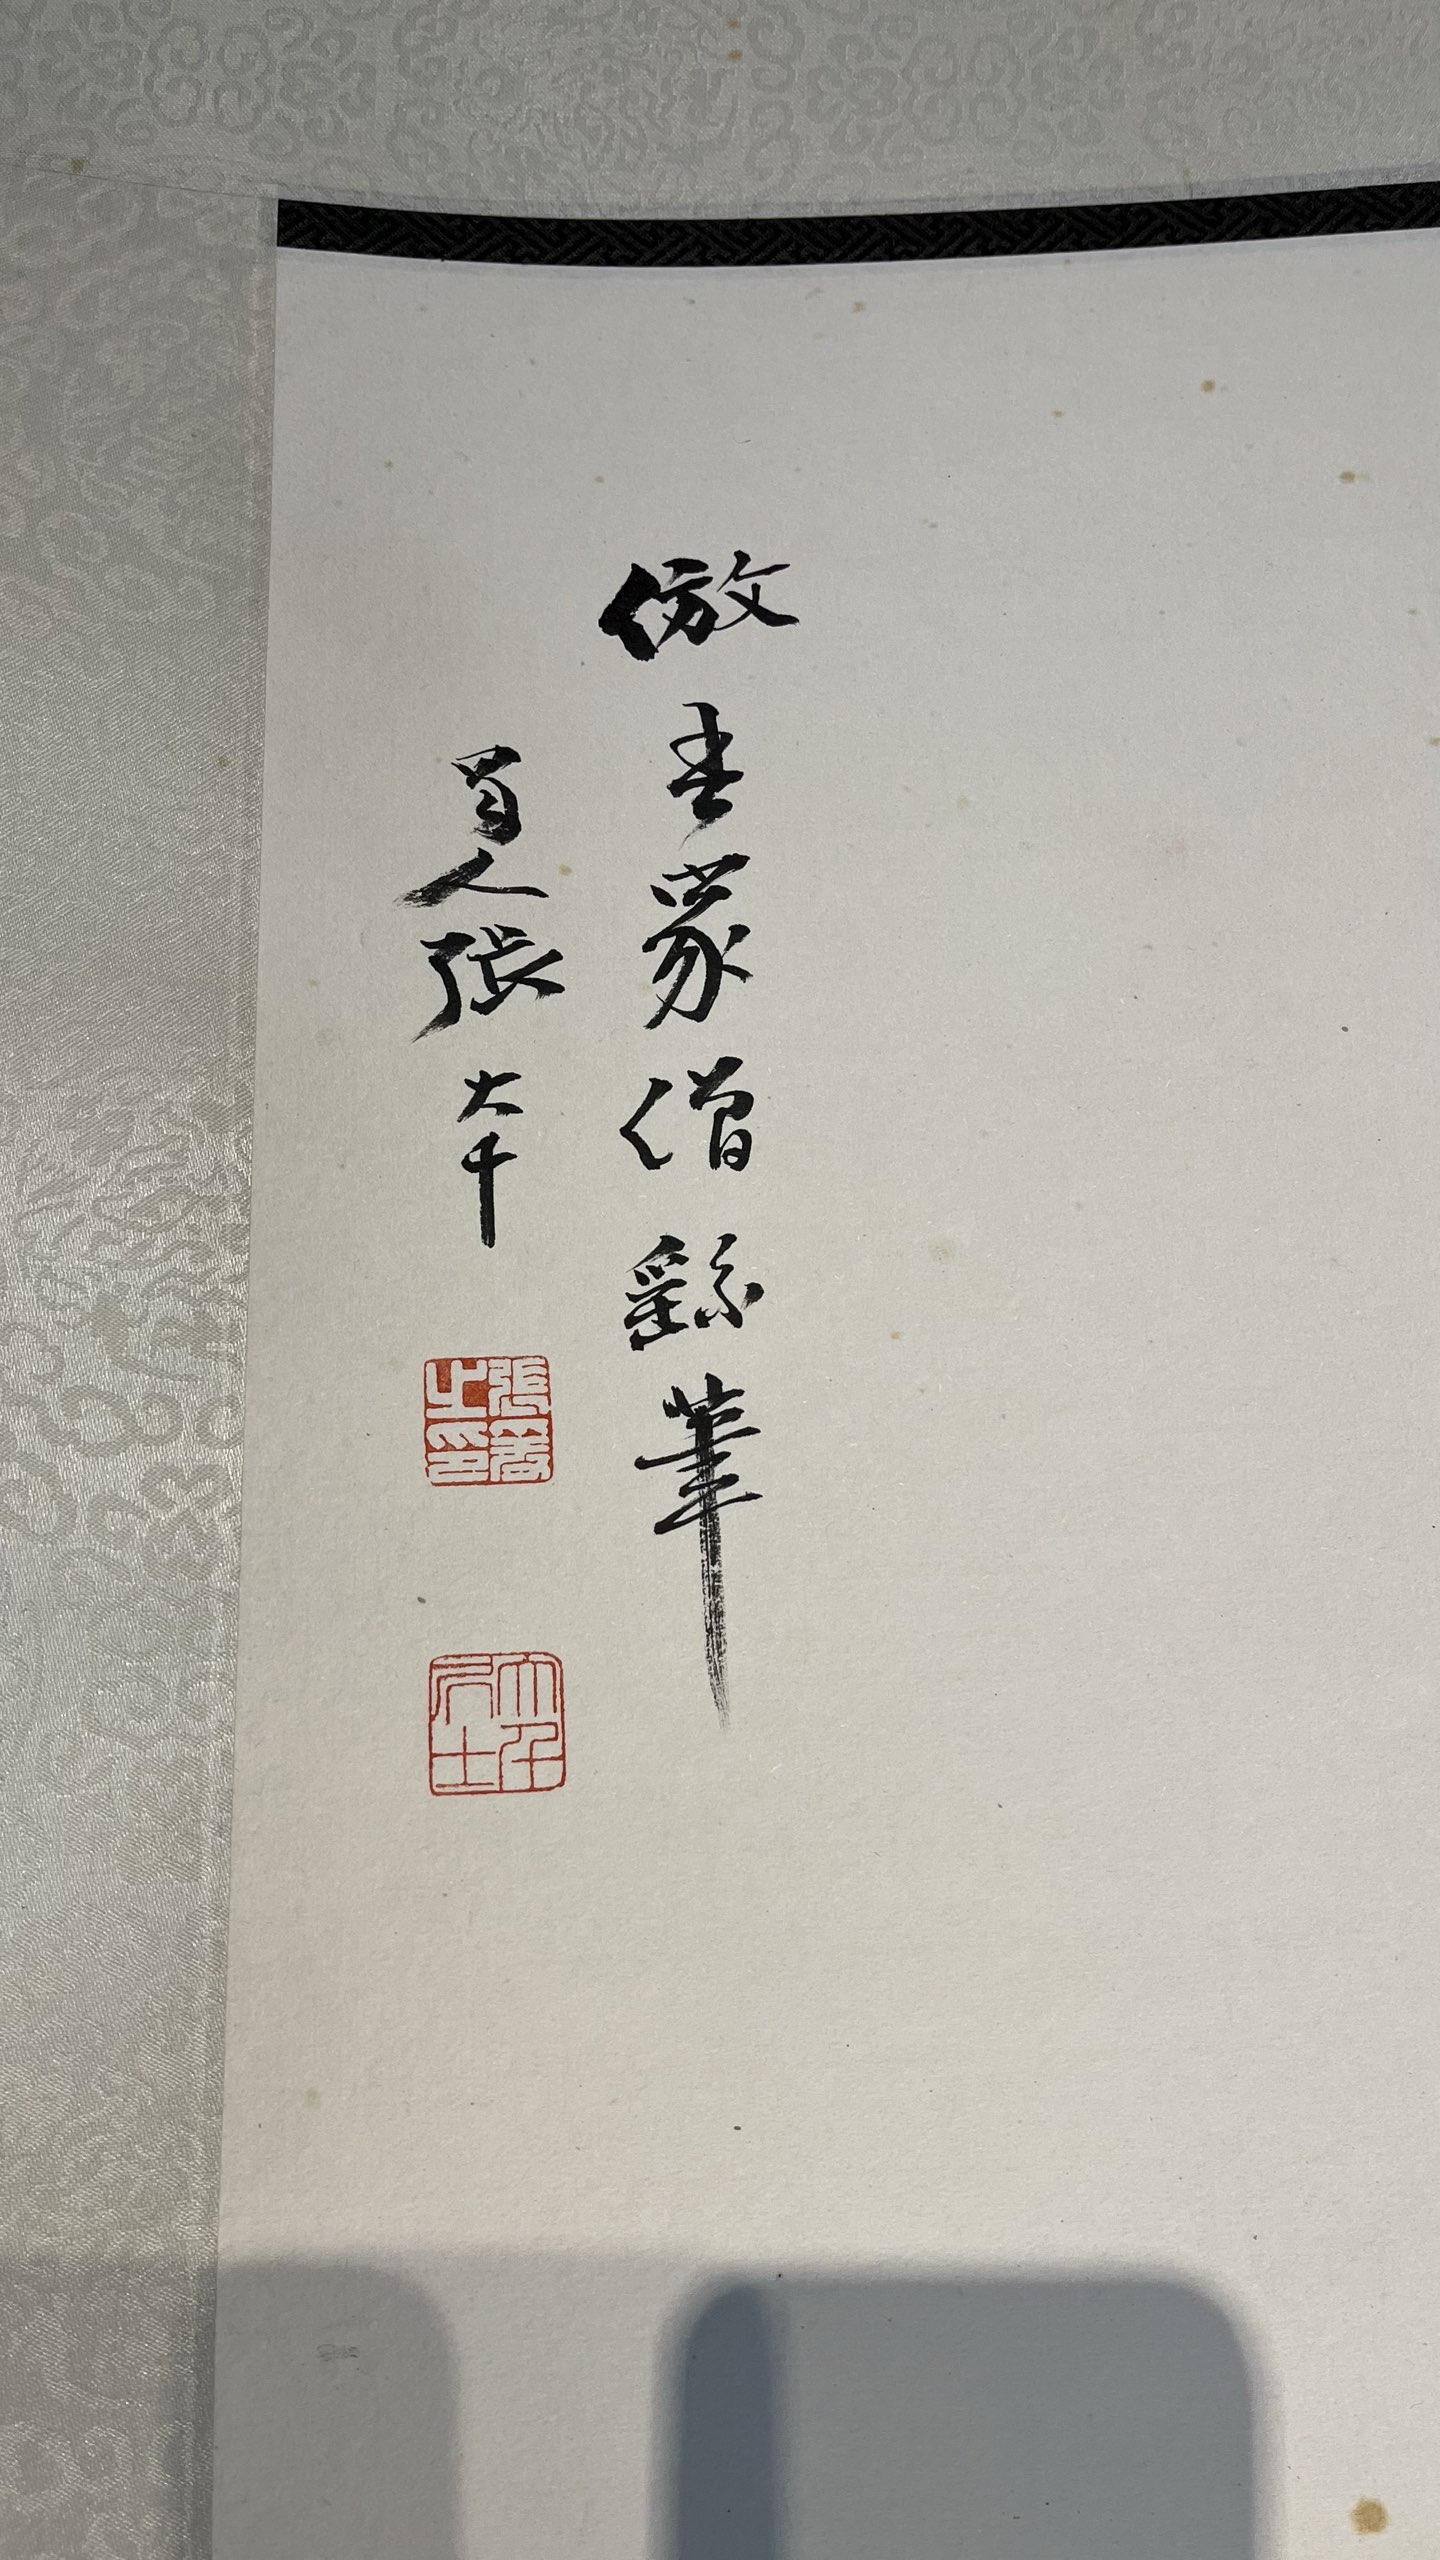 倣王蒙僧繇筆
蜀人張大千
張爰之印
大千居士